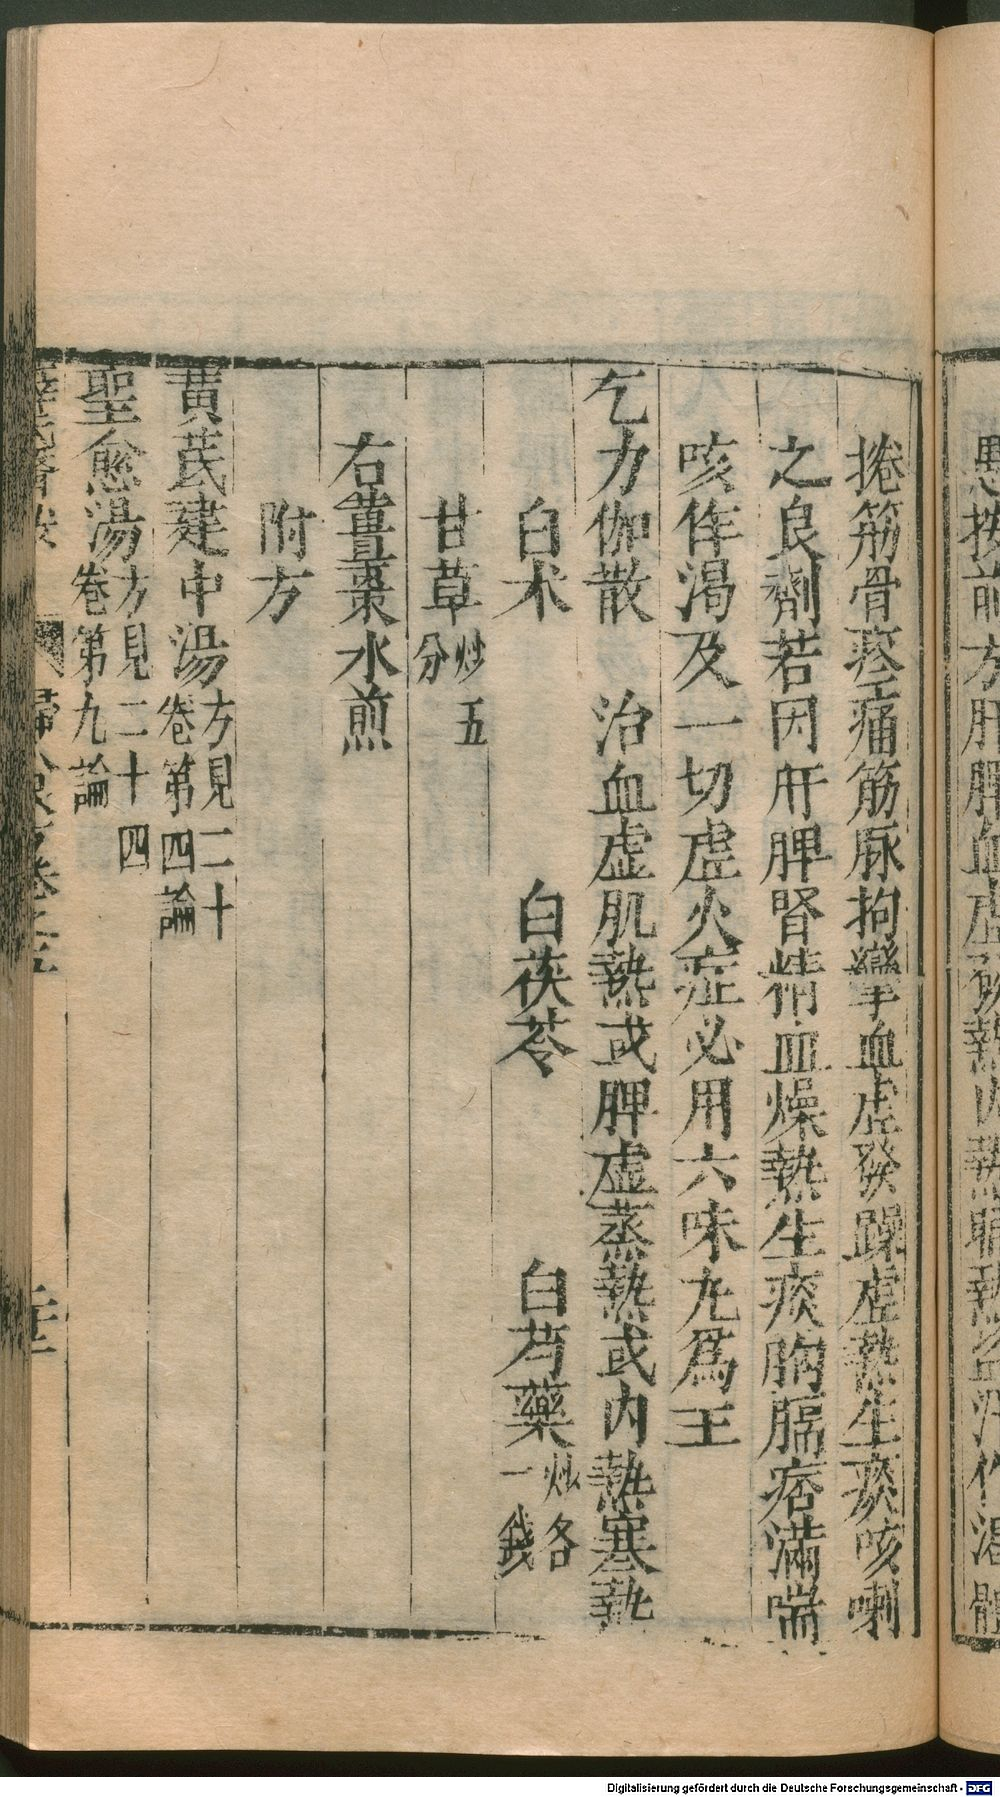 愚按前方肝脾血虛發熱內熱晡熱盜汗作渴體
捲筋骨疼痛筋脉拘攣血虛發躁虛熱生痰咳喇
之良劑若因肝脾腎精血燥熱生痰胸膈痞滿喘
咳作渴及一切虛火症必用六味九爲王
乞力伽散 治血虛肌熱或脾虛蒸熱或內熱寒熱
白术 白茯苓 白芍藥炒各一錢
甘草炒五分
右薑棗水煎
附方
黃芪建中湯方見二十卷第四論
聖愈湯方見二十四卷第九論
薛氏醫按
Digitalisierung gefördert durch die Deutsche Forschungsgemeinschaft - DFG